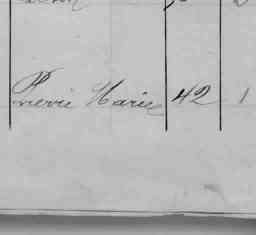 Pierre Marie 42 1